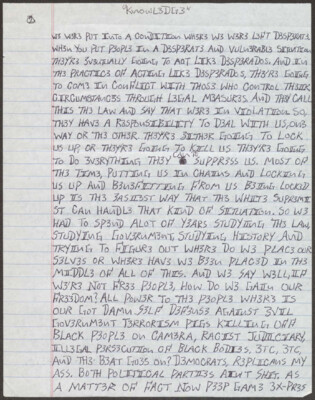 "KNOWL3DG3"
W3 W3R3 PUT INTO A CONDITION WH3R3 W3 W3R3 L3FT D3SP3RAT3.
WH3N YOU PUT P3OPL3 IN A D3SP3RAT3 AND VULN3RABL3 SITUATION
TH3Y'R3 3V3NTUALLY GOING TO ACT LIK3 D3SP3RADOS. AND IN
TH3 PRACTIC3 OF ACTING LIK3 D3SP3RADO3S, TH3Y'R3 GOING
TO COM3 IN CONFLICT WITH THOS3 WHO CONTROL TH3IR
CIRCUMSTANC3S THROUGH L3GAL M3ASUR3S. AND TH3Y CALL
THIS TH3 LAW AND SAY THAT W3'R3 IN VIOLATION SO,
TH3Y HAV3 A R3SPONSIBILITY TO D3AL WITH US, ON3
WAY OR TH3 OTH3R TH3Y'R3 3ITH3R GOING TO LOCK
US UP, OR TH3Y'R3 GOING TO KILL US. TH3Y'R3 GOING
TO DO 3V3RYTHING TH3Y CAN TO SUPPR3SS US. MOST OF
TH3 TIM3, PUTTING US IN CHAINS AND LOCKING
US UP AND B3N3FITTING FROM US B3ING LOCK3D
UP IS TH3 3ASI3ST WAY THAT TH3 WHIT3 SUPR3MI
ST CAN HANDL3 THAT KIND OF SITUATION. SO W3
HAD TO SP3ND ALOT OF Y3ARS STUDYING TH3 LAW,
STUDYING GOV3RNM3NT, STUDYING HISTORY AND
TRYING TO FIGUR3 OUT WH3R3 DO W3 PLAC3 OUR
S3LV3S OR WH3R3 HAV3 W3 B33N PLAC3D IN TH3
MIDDL3 OF ALL OF THIS. AND W3 SAY W3LL, IF
W3'R3 NOT FR33 P3OPL3, HOW DO W3 GAIN OUR
FR33DOM? ALL POW3R TO TH3 P3OPL3. WH3R3 IS
OUR GOT DAMN S3LF D3F3NS3 AGAINST 3VIL
GOV3RNM3NT T3RRORISM PIGS KILLING OFF
BLACK P3OPL3 ON CAM3RA, RACIST JUDICIARY,
ILL3GAL P3RS3CUTION OF BLACK BODI3S, 3TC, 3TC,
AND TH3 B3AT GO3S ON? D3MOCRATS, R3PLICANS MY
ASS. BOTH POLITICAL PARTI3S AIN'T SHIT. AS
A MATT3R OF FACT NOW P33P GAM3 3X-PR3S